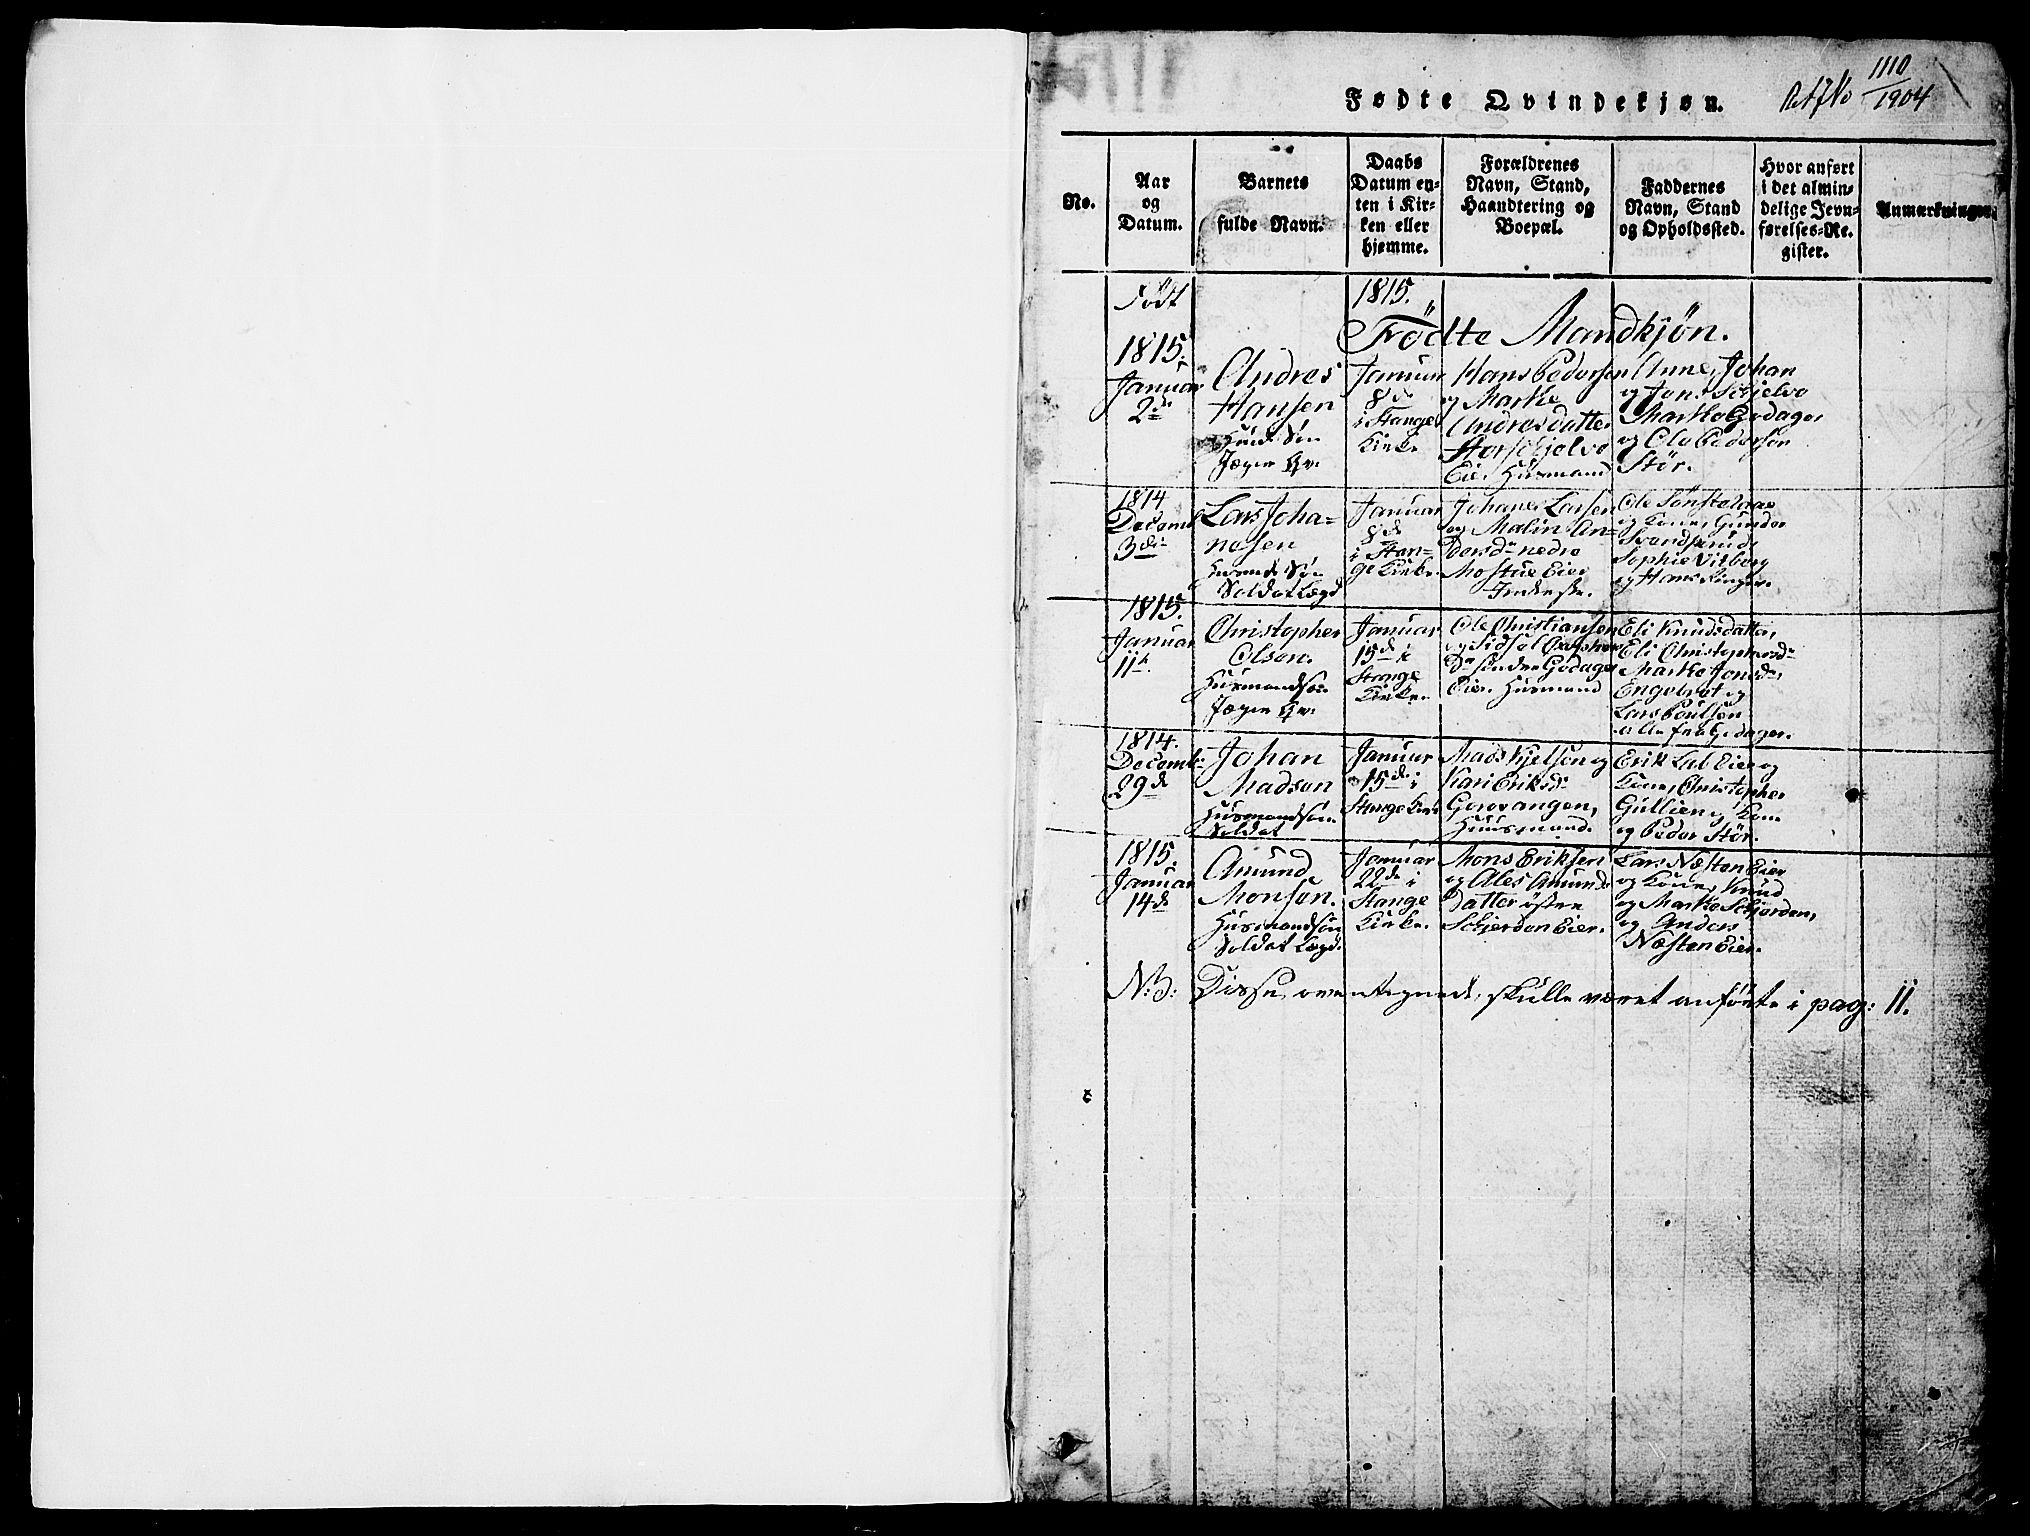 1110
1904
Fødte Qvindekjøn.
No.
Aar
og
Datum.
Barnets
fulde Navn.
Daabs
Datum en-
ten i Kir-
ken eller
hjemme.
Forældrenes
Navn, Stand,
Haandtering og
Boepæl.
Faddernes
Navn, Stand
og Opholdssted.
Hvor anført
i det almin-
delige Jevn-
førelses-Re-
gister.
Anmærkninger.
Født
1815.
Födte Mandkjøn.
1815.
Januar
2de
Andres
Hansen
Huusm: Søn
Jæger
Januar
8de
i Stange
Kirke
Hans Pedersen
og Marthe
Andresdatter
Storschjelvs
Eie, Huusmand
Anne, Johan
og Jon Schjelvs
Marthe Godager
og Ole Pedersen
Stör.
1814
Decemb
3die
Lars Joha-
nesen
Søn
Soldat Lægd
Januar
8de
i Stan-
ge Kirke
Johanes Larsen
og Malin An-
dersdr nedre
Mostue Eier
Ole
og Kone, Gunder
Svendsrud
Sophie Vitberg
og Hans
1815.
Januar
11te
Christopher
Olsen.
Husmandsøn
Jæger
Januar
15de i
Stange
Kirke
Ole Christiansen
og Sidsel
Dr søndre Godager
Eie, Husmand
Eli Knudsdatter,
Eli Christophersdr
Marthe Jonsdr,
Engebret og
Lars Poulsen
alle fra Godager.
1814.
Decembr
29de
Johan
Madsen
Husmandsøn
Soldat
Januar
15de i
Stange Kirke
Mads Kjelsen og
Kari Eriksdr
Gorovangen,
Huusmand.
Erik Lal Eier og
Kone, Christopher
Gullien og Kone
og Peder Stör.
1815.
Januar
14de
Amund
Monsen.
Husmandsøn
Soldat Lægd.
Januar
22de i
Stange
Kirke
Mons Eriksen
og Ales Amunds
Datter östre
Schjerden Eier.
Lars Næsten Eier
og Kone, Knud
og Marthe Schjerden,
og Anders
Næsten Eier.
N:B: Disse ovenstegnede, skulle været anförte i pag: 11.